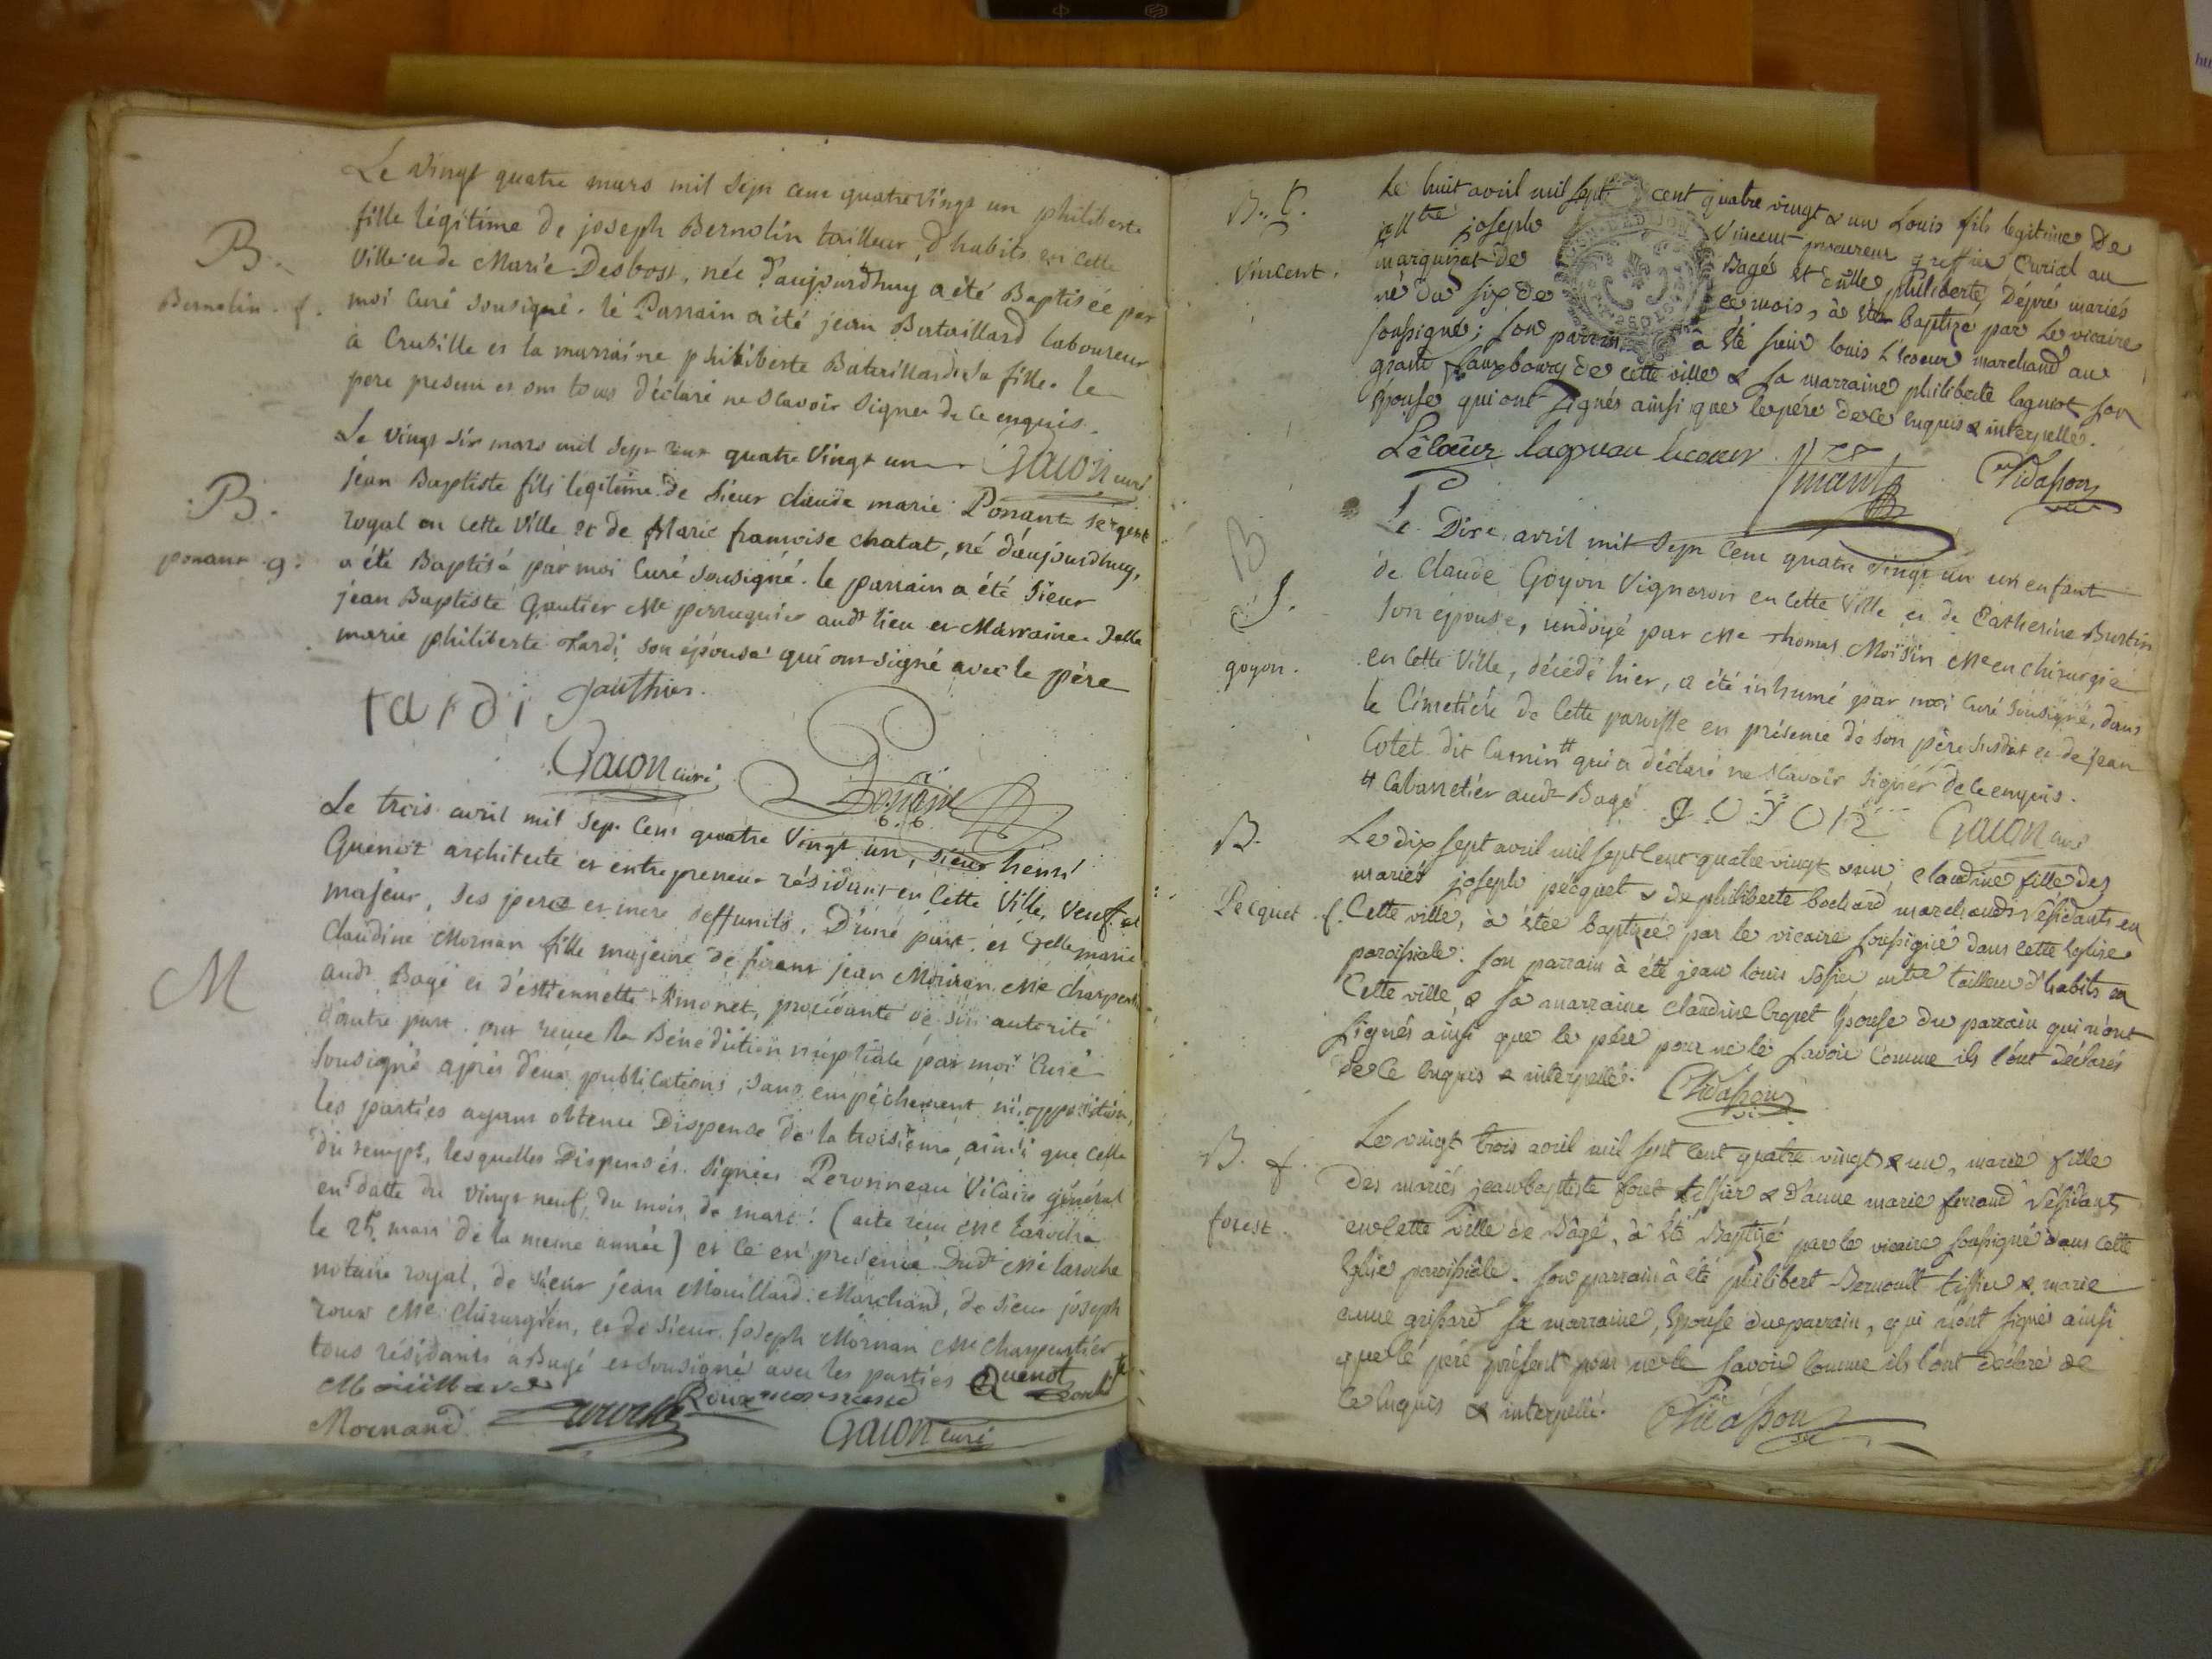 Le vingt quatre mars mil sept cent quatre vingt un philiberte
fille légitime de joseph Bernolin tailleur d'habits en cette
B.
ville et de Marie Desbost, née d'aujourdhuy a été Baptisée par
Bernolin . f.
moi Curé sousigné. le Parrain a été jean Bataillard laboureur
à Crusille et la marraine philiberte Bataillard sa fille. le
pere present et ont tous déclaré ne sçavoir signer de ce enquis.
Gacon curé
Le vingt six mars mil sept cent quatre vingt un
B.
jean Baptiste fils legitime de sieur claude marie Ponant sergent
royal en cette ville et de Marie francoise chatat, né d'aujourdhuy,
ponant g.
a été Baptisé par moi Curé sousigné. le parrain a été sieur
jean Baptiste Gautier Me perruquier audt lieu et Marraine Delle
marie philiberte Tardi son épouse qui ont signé avec le père
tardi gauthier
Gacon curé Ponant
Le trois avril mil sept cent quatre vingt un, sieur henri
Guenot architecte et entrepreneur résidant en cette ville, veuf et
majeur, ses pere et mere deffunts, D'une part. et Delle marie
Claudine Mornan fille majeure de sieur jean Mornan Me charpentier
M
audt Bagé et d'estiennette Simonet, procédante de son autorité
d'autre part. ont reçue la Bénédiction nuptiale par moi Curé
sousigné après deux publications, sans empêchement ni opposition,
les parties ayant obtenu Dispense de la troisieme, ainsi que celle
du temps, lesquelles Dispenses signées Peronneau Vicaire général
en datte du vingt neuf du mois de mars: (acte reçu Me Laroche
le 25 mars de la meme année) et ce en presence Dudt Me laroche
notaire royal, de sieur jean Mouillard Marchand, de sieur joseph
roux Me Chirurgien, et de sieur joseph Mornan Me charpentier
tous résidants à Bagé et sousigné avec les parties Quenot
Mouillard Roux
Mornand Gacon curé
B. C.
Le huit avril mil sept cent quatre vingt & un Louis fils legitime de
Mtre joseph Vincent procureur greffier Curial au
Vincent.
marquisat de Bagé et d'ille philiberte Dépré mariés
né du six de ce mois, à été baptizé par le vicaire
soussigné; son parrin à été sieur louis L'écoeur marchand au
grand fauxbourg de cette ville & sa marraine philiberte lagnot son
épouse qui ont signés ainsi que le pére de ce enquis & interpellé.
Lécoeur lagneau lecoeur Vincent
Le Dix avril mil sept cent quatre vingt un un enfant
B
de Claude Goyon Vigneron en cette ville et de Catherine Burtin
S.
son épouse, undoyé par Me Thomas Moisin Me en chirurgie
goyon.
en cette ville, décédé hier, a été inhumé par moi Curé sousigné, dans
le Cimetiére de cette paroisse en présence de son père susdit et de jean
Cotet dit Camin # qui a déclaré ne sçavoir signer de ce enquis.
# Cabaretiér audt Bagé goyon Gacon curé
B.
Le dix sept avril mil sept cent quatre vingt & un, claudine fille des
mariés joseph pécquet & de philiberte bochard marchands résidants en
Pecquet f.
cette ville, à étée baptizée par le vicaire soussigné dans cette Eglise
paroissiale: son parrain à été jean louis tissier mtre tailleur d'habits en
cette ville & sa marraine claudine Croset épouse du parrain qui n'ont
signés ainsi que le pére pour ne le savoir comme ils l'ont déclarés
de ce enquis & interpellé.
Le vingt trois avril mil sept cent quatre vingt & un, marie fille
B. f.
des mariés jean baptiste foret tissier & d'anne marie ferrand résidants
forest.
en cette ville de Bâgé, à été Baptizé par le vicaire soussigné dans cette
Eglise paroissiale. son parrain à été philibert Bernoult tissier & marie
anne grisard sa marraine, épouse du parrain, qui n'ont signés ainsi
que lé pere présent pour ne le savoir comme ils l'ont déclaré de
ce enquis & interpellé.